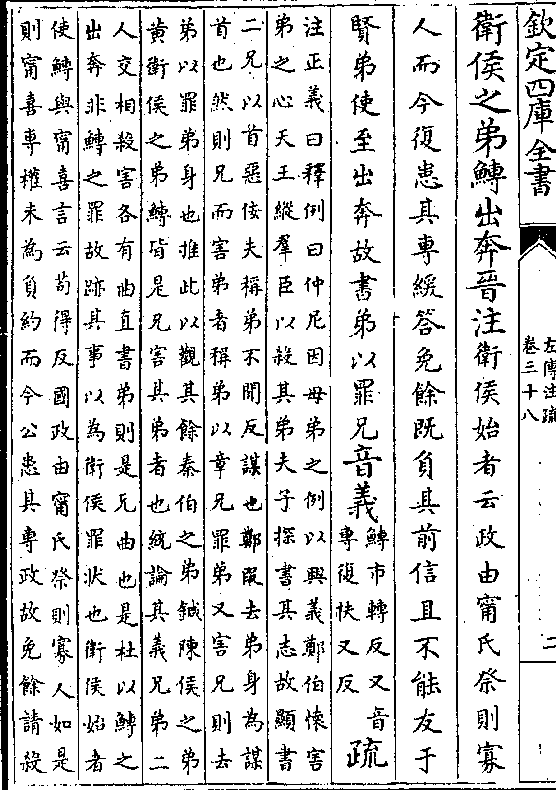 欽定四庫全書
左傳注疏
卷三十八
二
衛侯之弟鱄出奔晉注衛侯始者云政由甯氏祭則寡
人而今復患其專緩答免餘既負其前信且不能友于
賢弟使至出奔故書弟以罪兄音義
鱄市轉反又音
專復扶又反
疏
注正義曰釋例曰仲尼因母弟之例以興義鄭伯懷害
弟之心天王縱羣臣以殺其弟夫子探書其志故顯書
二兄以首惡佞夫稱弟不聞反謀也鄭段去弟身為謀
首也然則兄而害弟者稱弟以章兄罪弟又害兄則去
弟以罪弟身也推此以觀其餘秦伯之弟鍼陳侯之弟
黃衛侯之弟鱄皆是兄害其弟者也統論其義兄弟二
人交相殺害各有曲直書弟則是兄曲也是杜以鱄之
出奔非鱄之罪故跡其事以為衛侯罪狀也衛侯始者
使鱄與甯喜言云苟得反國政由甯氏祭則寡人如是
則甯喜專權未為負約而今公患其專政故免餘請殺